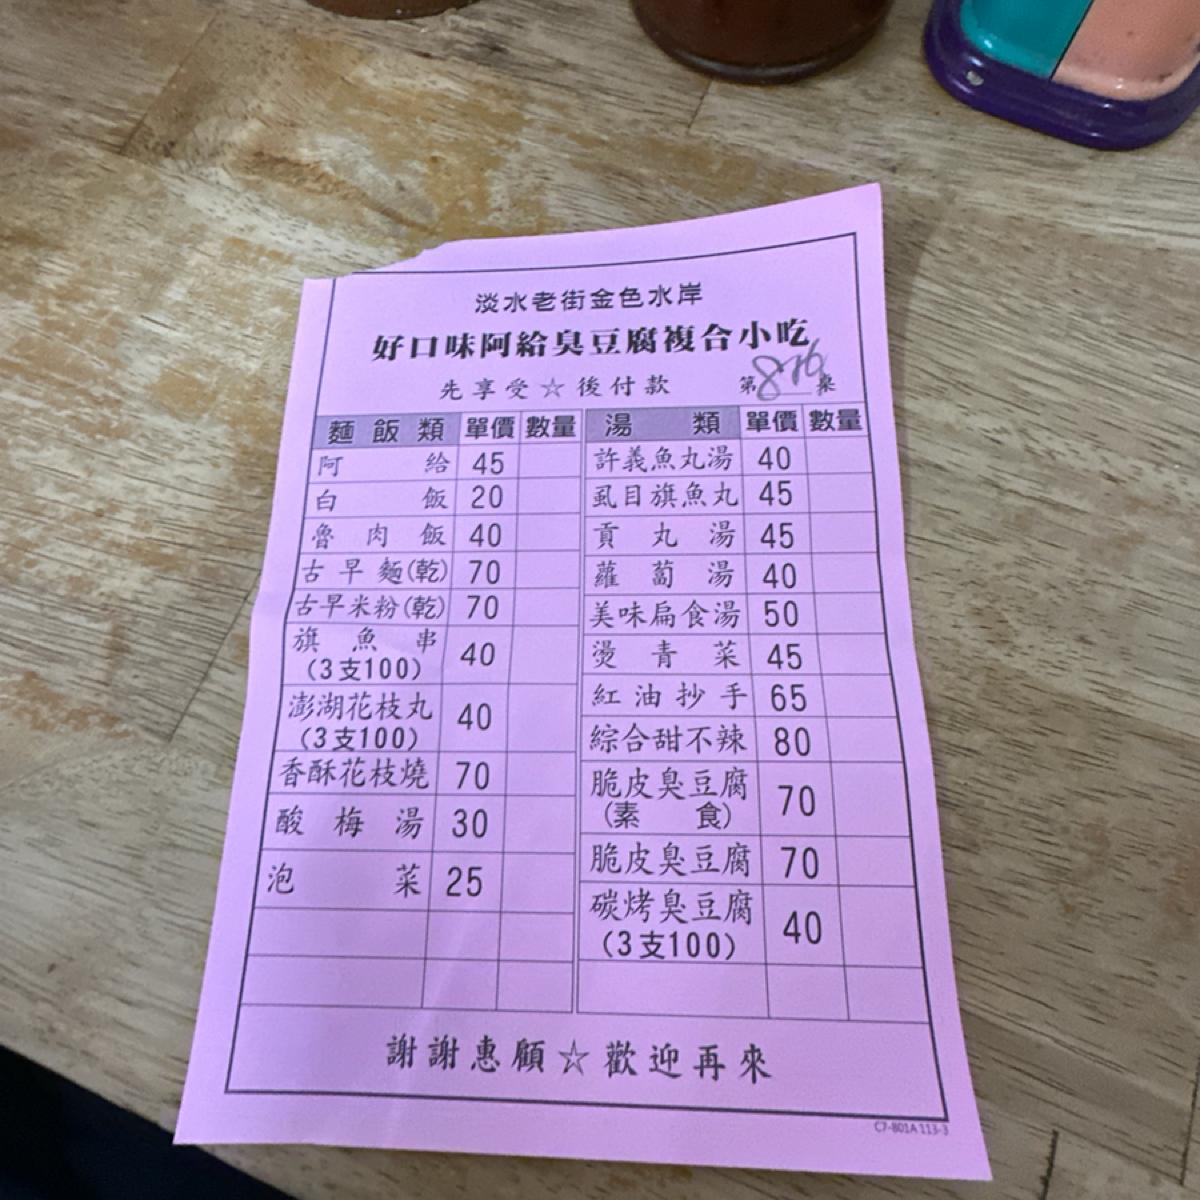 淡水老街金色水岸
好口味阿給臭豆腐複合小吃
先享受☆後付款 第 桌
麵飯類 單價 數量
阿給 45
白飯 20
魯肉飯 40
古早麵(乾) 70
古早米粉(乾) 70
旗魚串 40
(3支100)
澎湖花枝丸 40
(3支100)
香酥花枝燒 70
酸梅湯 30
泡菜 25
湯類 單價 數量
許義魚丸湯 40
虱目旗魚丸 45
貢丸湯 45
蘿蔔湯 40
美味扁食湯 50
燙青菜 45
紅油抄手 65
綜合甜不辣 80
脆皮臭豆腐 70
(素食)
脆皮臭豆腐 70
碳烤臭豆腐 40
(3支100)
謝謝惠顧☆歡迎再來
C7-801A 113-3